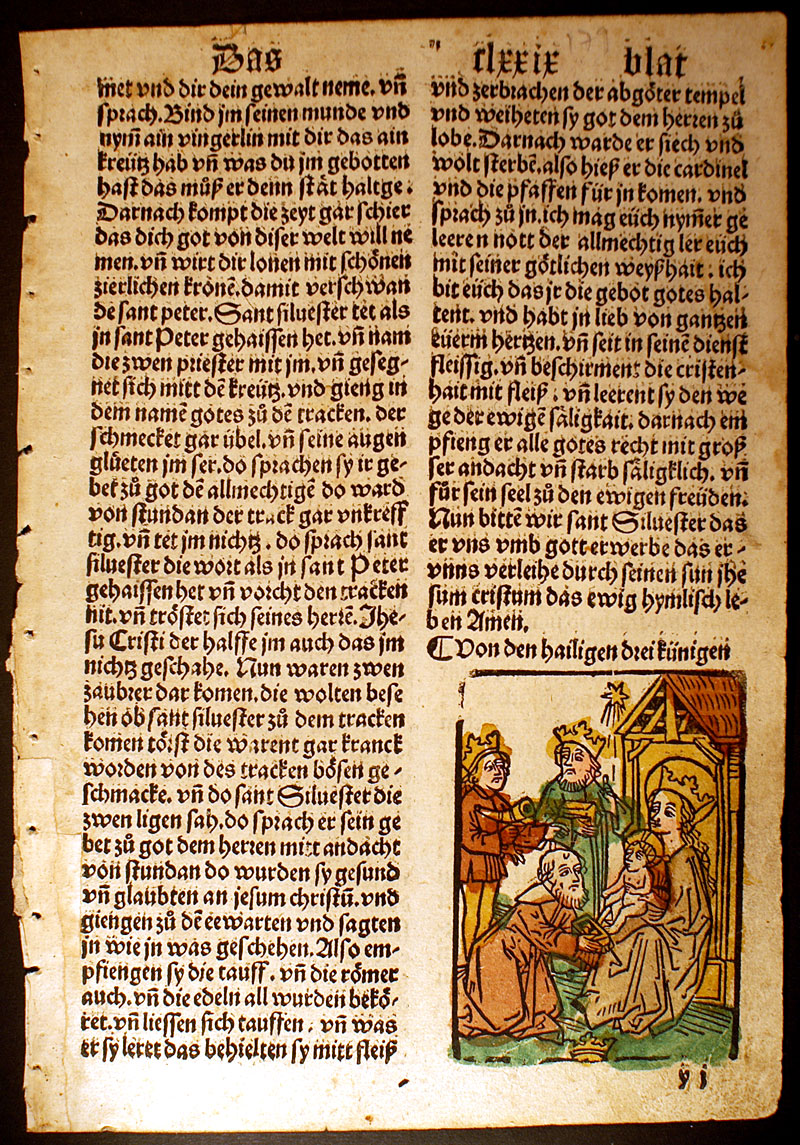 Das clxxix blat
met vnd dir dein gewalt neme. vñ
sprach. Bind jm seinen munde vnd
nym̃ ain vingerlin mit dir das ain
kreütz hab vñ was du jm gebotten
hast das můß er denn stät haltẽ.
Darnach kompt die zeyt gar schier
das dich got von diser welt will ne
men. vñ wirt dir lonen mit schönen
zierlichen kronẽ. damit verschwan
de sant peter. Sant siluester tet als
jn sant Peter gehaissen het. vñ nam
die zwen priester mit jm. vñ geseg-
net sich mitt dẽ kreütz. vnd gieng in
dem namẽ gotes zů dẽ tracken. der
schmecket gar übel. vñ seine augen
glůeten jm ser. do sprachen sy ir ge-
bet zů got dẽ allmechtigẽ do ward
von stundan der track gar vnkreff
tig. vñ tet jm nichtz. do sprach sant
siluester die wort als jn sant Peter
gehaissen het vñ vorcht den tracken
nit. vñ tröstet sich seines herrẽ. Jhe-
su Cristi der halffe jm auch das jm
nichtz geschahe. Nun waren zwen
zaubrer dar komen. die wolten bese
hen ob sant siluester zů dem tracken
komen törst die warent gar kranck
worden von des tracken bösen ge-
schmacke. vñ do sant Siluester die
zwen ligen sah. do sprach er sein ge
bet zů got dem herren mitt andacht
von stundan do wurden sy gesund
vñ glaubten an jesum christũ. vnd
giengen zů dẽ eewarten vnd sagten
jn wie jn was geschehen. Also em-
pfiengen sy die tauff. vñ die römer
auch. vñ die edeln all wurden bekö-
ret. vñ liessen sich tauffen. vñ was
er sy leret das behielten sy mitt fleiß
vnd zerbrachen der abgöter tempel
vnd weiheten sy got dem herren zů
lobe. Darnach warde er siech vnd
wolt sterbẽ. also hieß er die cardinel
vnd die pfaffen für jn komen. vnd
sprach zů jn. ich mag eüch nym̃er ge
leeren nott der allmechtig ler eüch
mit seiner götlichen weyßhait. ich
bit eüch das jr die gebot gotes hal-
tent. vnd habt jn lieb von gantzen
eüerm hertzen. vñ seit in seinẽ dienst
fleissig. vñ beschirment die cristen-
hait mit fleiß. vñ leerent sy den we
ge der ewigẽ säligkait. darnach em
pfieng er alle gotes recht mit groß
ser andacht vñ starb säligklich. vñ
für sein seel zů den ewigen freüden.
Nun bittẽ wir sant Siluester das
er vns vmb gott erwerbe das er-
vnns verleihe durch seinen sun jhe
sum cristum das ewig hymlisch le-
ben Amen.
¶ Von den hailigen drei künigen
y j